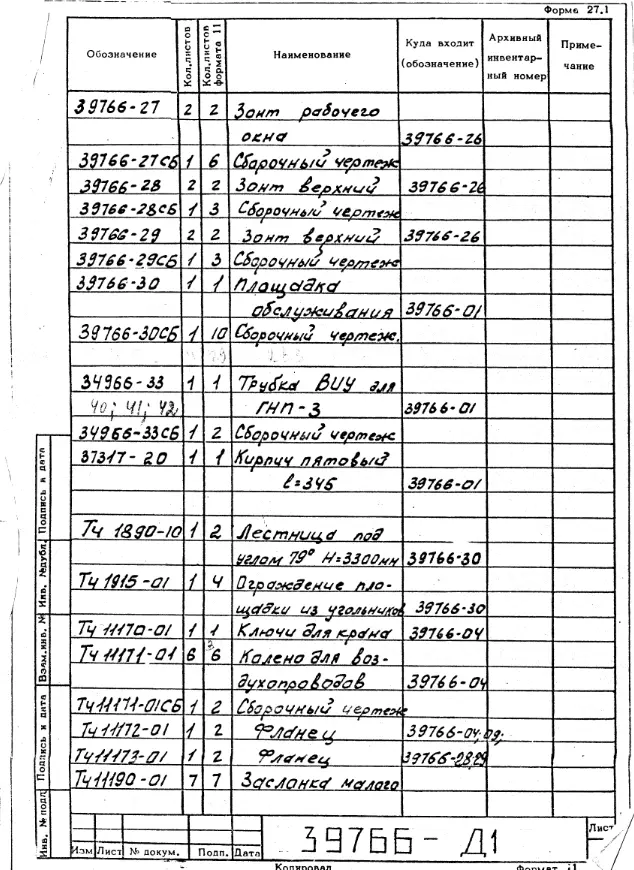 Форма 27.1
Обозначение Кол.листов Кол.листов формата 11 Наименование Куда входит (обозначение) Архивный инвентар-ный номер Приме-чание
39766-27 2 2 Зонт рабочего
окна 39766-26
39766-27СБ 1 6 Сборочный чертеж
39766-28 2 2 Зонт верхний 39766-26
39766-28СБ 1 3 Сборочный чертеж
39766-29 2 2 Зонт верхний 39766-26
39766-29СБ 1 3 Сборочный чертеж
39766-30 1 1 Площадка
обслуживания 39766-01
39766-30СБ 1 10 Сборочный чертеж.
34966-33 1 1 Трубка ВИУ для
40; 41; 42 ГНП-3 39766-01
34966-33СБ 1 2 Сборочный чертеж
37317-20 1 1 Кирпич пятовый
ℓ=345 39766-01
ТЧ 1890-10 1 2 Лестница под
углом 79° Н=3300мм 39766-30
ТЧ 1915-01 1 4 Ограждение пло-
щадки из угольников 39766-30
ТЧ 11170-01 1 1 Ключи для крана 39766-04
ТЧ 11171-01 6 6 Колено для воз-
духопроводов 39766-04
ТЧ11171-01СБ 1 2 Сборочный чертеж
ТЧ11172-01 1 2 Фланец 39766-04;09;
ТЧ11173-01 1 2 Фланец 39766-28;29
ТЧ11190-01 7 7 Заслонка малого
Инв. № подл. Подпись и дата Взам.инв. № Инв. №дубл. Подпись и дата
39766- Д1
Лист
Изм Лист № докум. Подп. Дата
Копировал Формат 11